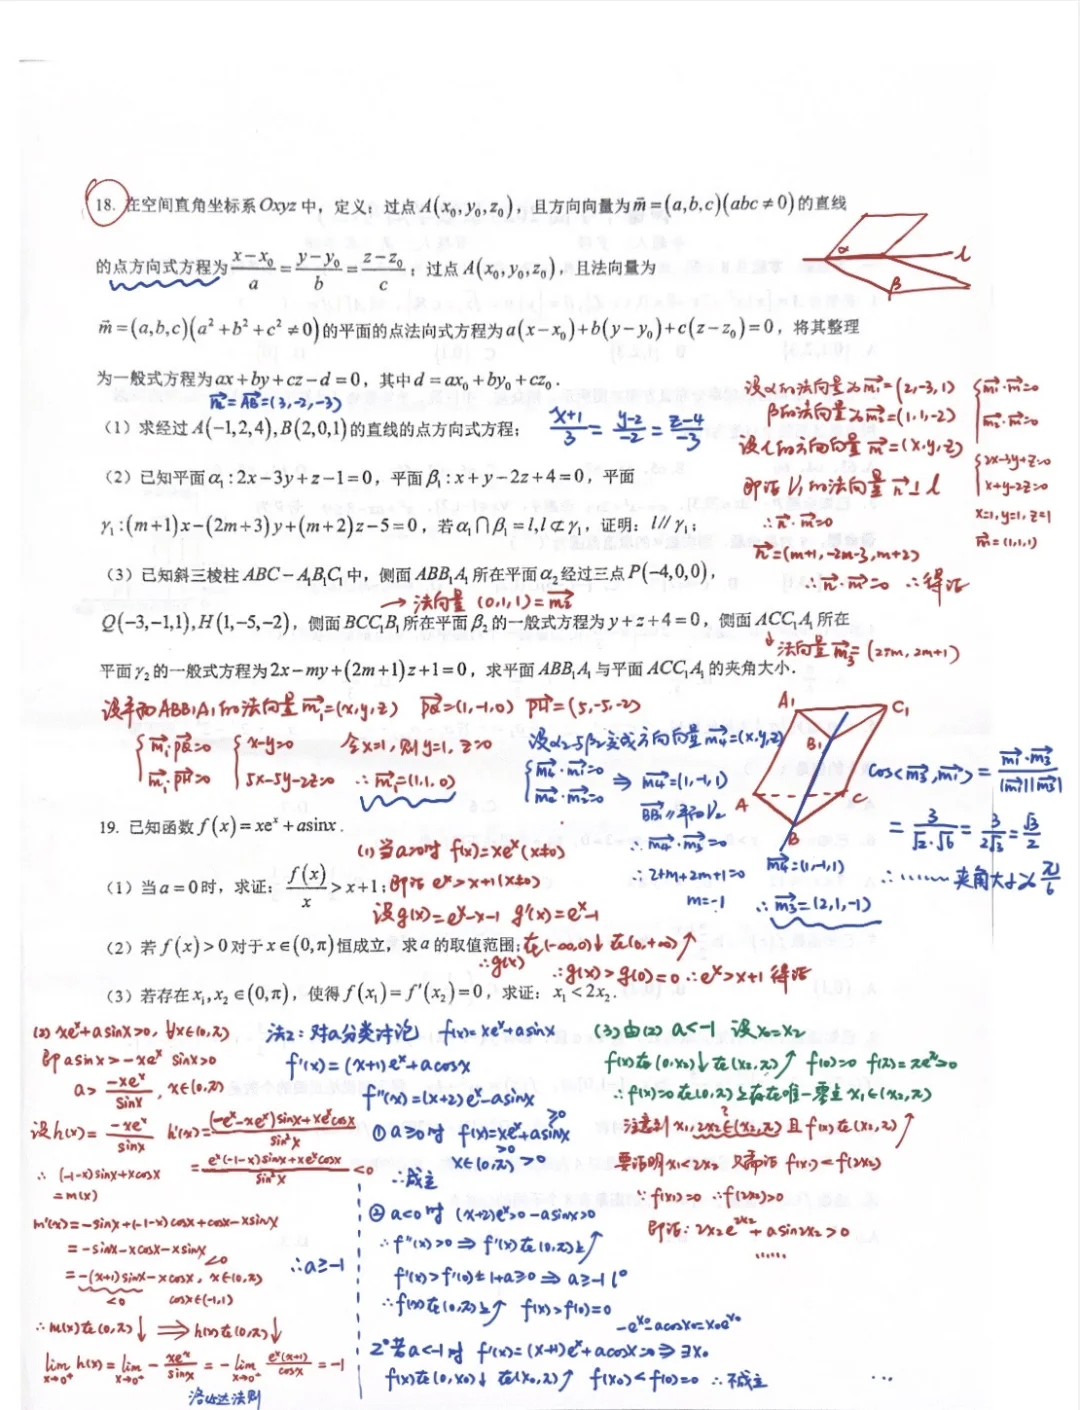 18. 在空间直角坐标系Oxyz中，定义：过点A(x₀,y₀,z₀)，且方向向量为m⃗=(a,b,c)(abc≠0)的直线
的点方向式方程为(x-x₀)/a=(y-y₀)/b=(z-z₀)/c；过点A(x₀,y₀,z₀)，且法向量为
m⃗=(a,b,c)(a²+b²+c²≠0)的平面的点法向式方程为a(x-x₀)+b(y-y₀)+c(z-z₀)=0，将其整理
为一般式方程为ax+by+cz-d=0，其中d=ax₀+by₀+cz₀.
α l
β
n⃗=AB⃗=(3,-2,-3)
（1）求经过A(-1,2,4),B(2,0,1)的直线的点方向式方程；
(x+1)/3=(y-2)/-2=(z-4)/-3
（2）已知平面α₁:2x-3y+z-1=0，平面β₁:x+y-2z+4=0，平面
γ₁:(m+1)x-(2m+3)y+(m+2)z-5=0，若α₁∩β₁=l,l⊄γ₁，证明：l//γ₁；
设α的法向量为m₁⃗=(2,-3,1)
β的法向量为m₂⃗=(1,1,-2)
设l的方向向量m⃗=(x,y,z)
即证γ₁的法向量n⃗⊥l
∴n⃗·m⃗=0
n⃗=(m+1,-2m-3,m+2)
∴n⃗·m⃗=0 ∴得证
m₁⃗·m⃗=0
m₂⃗·m⃗=0
2x-3y+z=0
x+y-2z=0
x=1,y=1,z=1
m⃗=(1,1,1)
（3）已知斜三棱柱ABC-A₁B₁C₁中，侧面ABB₁A₁所在平面α₂经过三点P(-4,0,0)，
→法向量 (0,1,1)=m₂⃗
Q(-3,-1,1),H(1,-5,-2)，侧面BCC₁B₁所在平面β₂的一般式方程为y+z+4=0，侧面ACC₁A₁所在
↓法向量m₃⃗=(2,-m,2m+1)
平面γ₂的一般式方程为2x-my+(2m+1)z+1=0，求平面ABB₁A₁与平面ACC₁A₁的夹角大小.
设平面ABB₁A₁的法向量m₁⃗=(x,y,z) PQ⃗=(1,-1,0) PH⃗=(5,-5,-2)
m₁⃗·PQ⃗=0 x-y=0 令x=1,则y=1,z=0
m₁⃗·PH⃗=0 5x-5y-2z=0 ∴m₁⃗=(1,1,0)
设α₂与β₂交线方向向量m₄⃗=(x,y,z)
m₄⃗·m₁⃗=0
m₄⃗·m₂⃗=0
⇒ m₄⃗=(1,-1,1)
BB₁⃗//平面γ₂
∴m₄⃗·m₃⃗=0
∴2+m+2m+1=0
m=-1
A₁ C₁
B₁
A C
B
m₄⃗=(1,-1,1)
∴m₃⃗=(2,1,-1)
cos<m₃⃗,m₁⃗>=m₁⃗·m₃⃗/|m₁⃗||m₃⃗|
=3/(√2·√6)=3/(2√3)=√3/2
∴……夹角大小为π/6
19. 已知函数f(x)=xeˣ+asinx.
（1）当a=0时，求证：f(x)/x>x+1；
(1)当a=0时 f(x)=xeˣ(x≠0)
即证 eˣ>x+1(x≠0)
设g(x)=eˣ-x-1 g'(x)=eˣ-1
（2）若f(x)>0对于x∈(0,π)恒成立，求a的取值范围；
∴g(x)在(-∞,0)↓在(0,+∞)↑
∴g(x)>g(0)=0 ∴eˣ>x+1 得证
（3）若存在x₁,x₂∈(0,π)，使得f(x₁)=f'(x₂)=0，求证：x₁<2x₂.
(2) xeˣ+asinx>0, ∀x∈(0,π)
即asinx>-xeˣ sinx>0
a>-xeˣ/sinx, x∈(0,π)
设h(x)=-xeˣ/sinx h'(x)=((-eˣ-xeˣ)sinx+xeˣcosx)/sin²x
=(eˣ(-1-x)sinx+xeˣcosx)/sin²x <0
∴(-1-x)sinx+xcosx
=m(x)
m'(x)=-sinx+(-1-x)cosx+cosx-xsinx
=-sinx-xcosx-xsinx
=-(x+1)sinx-xcosx, x∈(0,π) <0
<0 cosx∈(-1,1)
∴m(x)在(0,π)↓⇒h(x)在(0,π)↓
lim x→0⁺ h(x)=lim x→0⁺ -xeˣ/sinx=-lim x→0⁺ eˣ(x+1)/cosx=-1
洛必达法则
∴a≥-1
法2：对a分类讨论 f(x)=xeˣ+asinx
f'(x)=(x+1)eˣ+acosx
f''(x)=(x+2)eˣ-asinx
①a≥0时 f(x)=xeˣ+asinx
>0 ≥0
x∈(0,π) >0
∴成立
②a<0时 (x+2)eˣ>0 -asinx>0
∴f''(x)>0⇒f'(x)在(0,π)上↑
f'(x)>f'(0)=1+a≥0⇒a≥-1 1°
∴f(x)在(0,π)上↑ f(x)>f(0)=0
-eˣ⁰-acosx₀=x₀eˣ⁰
2°若a<-1时 f'(x)=(x+1)eˣ+acosx=0⇒∃x₀
f(x)在(0,x₀)↓在(x₀,π)↑ f(x₀)<f(0)=0 ∴不成立
(3)由(2) a<-1 设x₀=x₂
f(x)在(0,x₂)↓在(x₂,π)↑ f(0)=0 f(π)=πe^π>0
∴f(x)=0在(0,π)上存在唯一零点x₁∈(x₂,π)
注意到x₁,2x₂∈(x₂,π)且f(x)在(x₂,π)↑
?
要证明x₁<2x₂ 只需证f(x₁)<f(2x₂)
∵f(x₁)=0 ∴f(2x₂)>0
即证：2x₂e^(2x₂)+asin2x₂>0
……
…